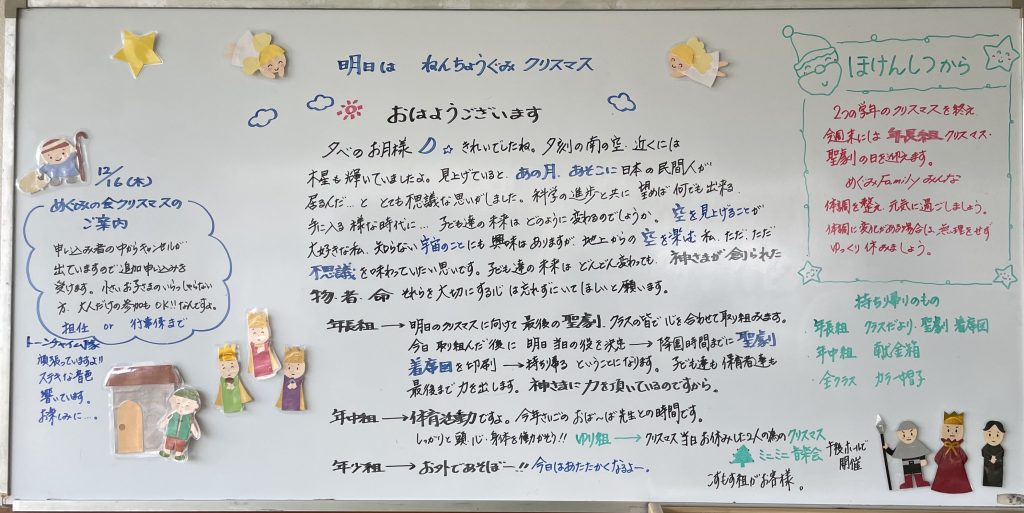 明日は ねんちょうぐみ クリスマス
おはようございます
夕べのお月様 きれいでしたね。夕刻の南の空、近くには
木星も輝いていましたよ。見上げていると、あの月、あそこに日本の民間人が
居るんだ…と とても不思議な思いがしました。科学の進歩と共に 望めば何でも出来る、
手に入る様な時代に… 子ども達の未来は どのように変わるのでしょうか。空を見上げることが
大好きな私、知らない宇宙のことにも興味はありますが、地上からの空を楽む私、ただ、ただ
不思議を味わっていたい思いです。子ども達の未来は どんどん変わっても、神さまが創られた
物・者・命 それらを大切にする心は忘れずにいてほしいと願います。
年長組→明日のクリスマスに向けて最後の聖劇、クラスの皆で心を合わせて取り組みます。
今日取り組んだ後に 明日当日の役を決定→降園時間までに聖劇
着席図を印刷→持ち帰る ということになります。子ども達も保育者達も
最後まで力を出します。神さまに力を頂いているのですから。
年中組→体育活動ですよ。今年さいごの おば〜ば先生との時間です。
しっかりと頭・心・身体を働かせろ!! ゆり組→クリスマス当日お休みした2人の為のクリスマス
ミニミニ音楽会
午後ホールで
開催
こすもす組がお客様。
年少組→お外であそぼー!! 今日はあたたかくなるよー。
12/16(木)
めぐみの会クリスマスの
ご案内
申し込み者の中からキャンセルが
出ていますので追加申し込みを
受けます。小さいお子さまのいらっしゃらない
方、大人だけの参加もOK!!なんですよ。
担任 or 行事係まで
トーンチャイム隊
頑張っていますよ!!
ステキな音色
響いています。
お楽しみに…。
ほけんしつから
2つの学年のクリスマスを終え
今週末には年長組クリスマス・
聖劇の日を迎えます。
めぐみFamilyみんな
体調を整え、元気に過ごしましょう。
体調に変化がある場合は、無理をせず
ゆっくり休みましょう。
持ち帰りのもの
・年長組 クラスだより、聖劇 着席図
・年中組 献金箱
・全クラス カラー帽子